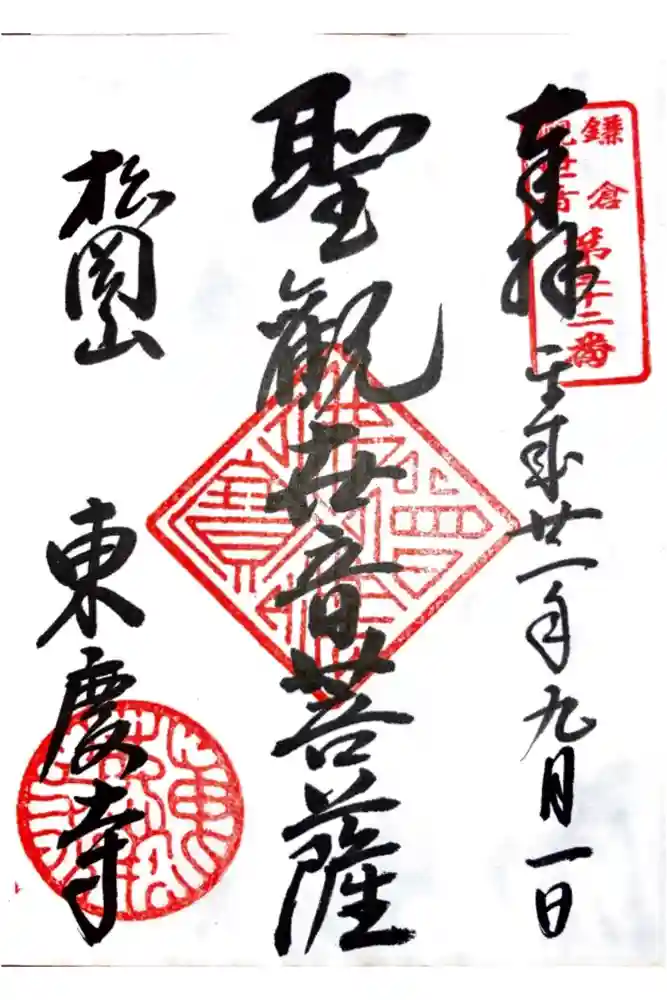 奉拝
平成廿一年九月一日
鎌倉
観世音
第三十二番
聖觀世音菩薩
松岡山
東慶寺